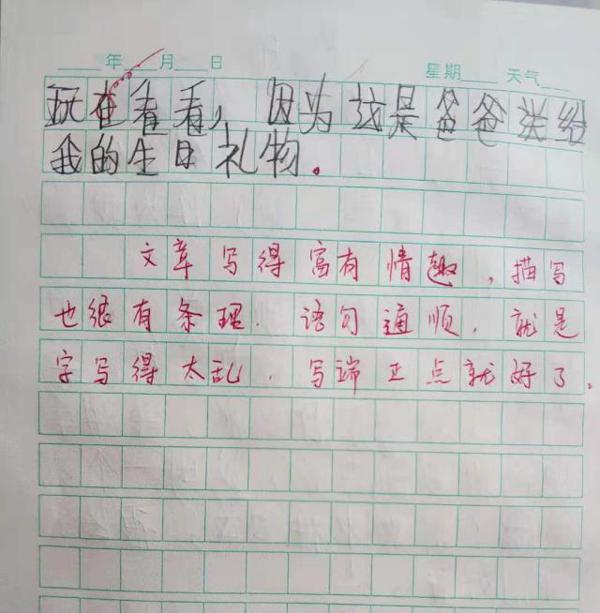 年 月 日 星期 天气
玩在看看，因为这是爸爸送给
我的生日礼物。
文章写得富有情趣，描写
也很有条理．语句通顺．就是
字写得太乱．写端正点就好了。